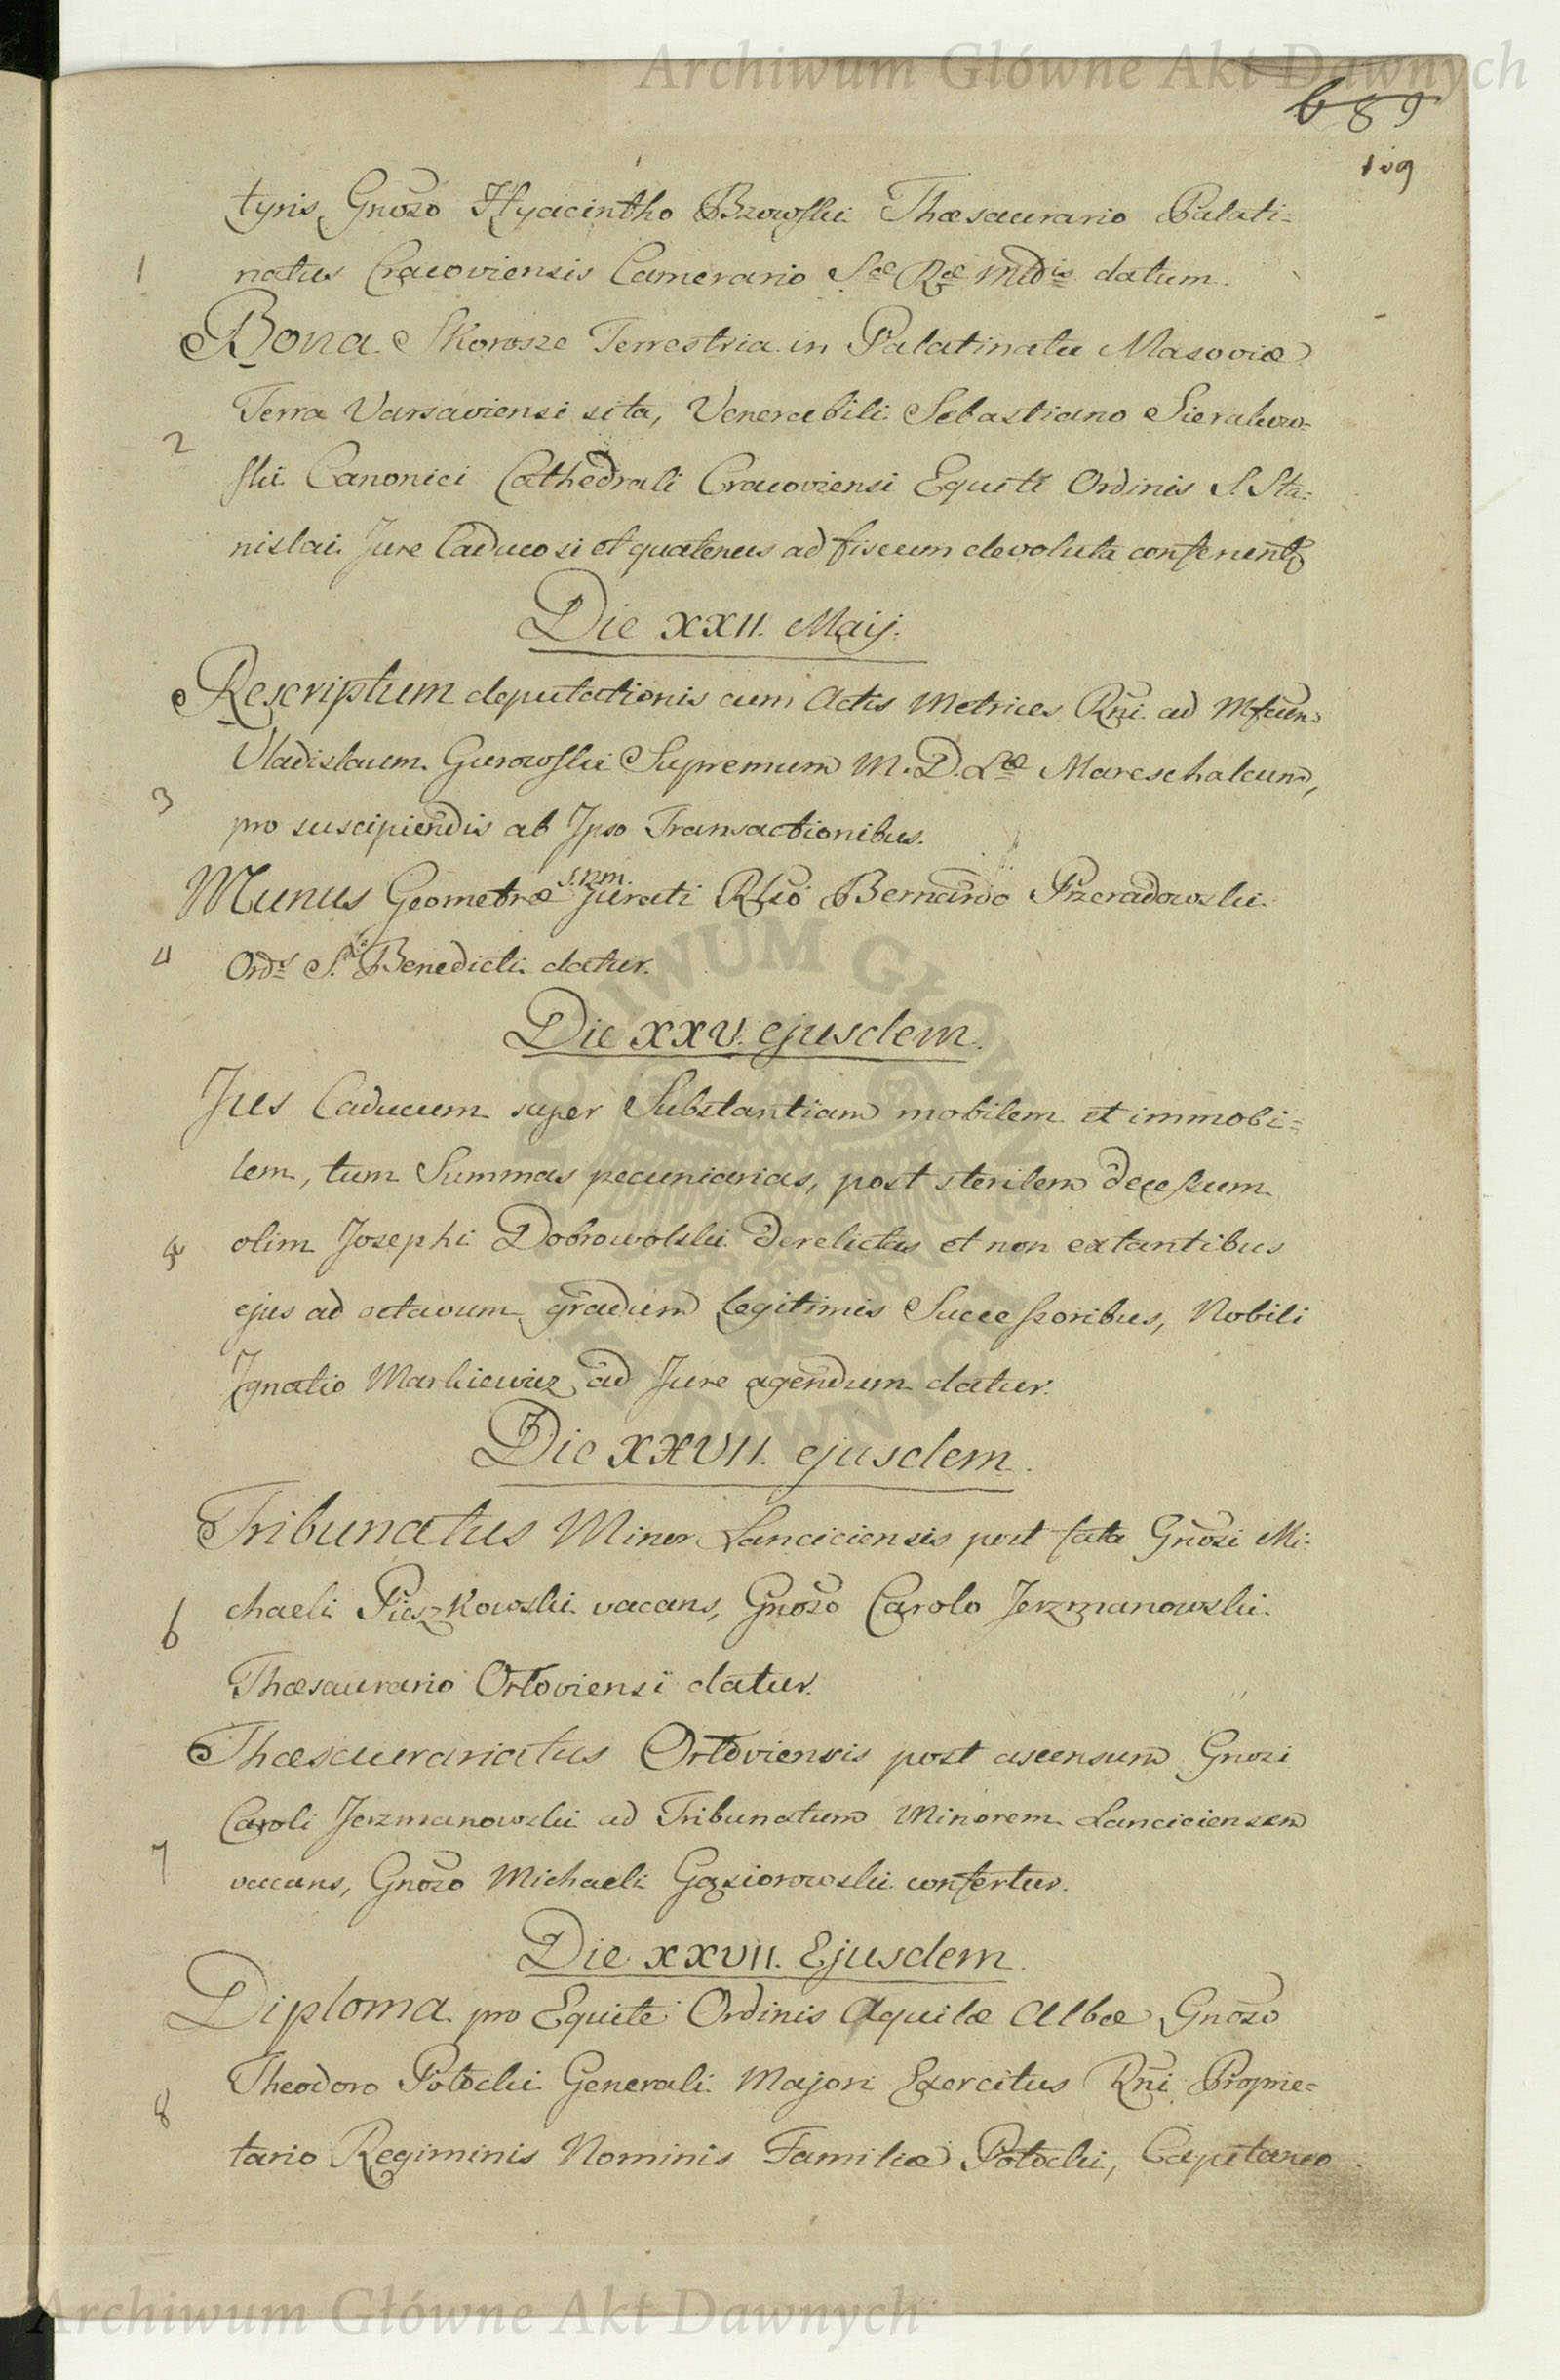 Archiwum Główne Akt Dawnych
689
109
tyris Gnoso Hyacintho Bzowski Thæsaurario Palati=
1
natus Cracoviensis Camerario Sæ Ræ Mtis datum.
Bona Skorosze Terrestria in Palatinatu Masoviæ
Terra Varsaviensi sita, Venerabili Sebastiano Sierakow=
2
ski Canonici Cathedrali Cracoviensi Equiti Ordinis S. Sta=
nislai Jure Caduco si et quatenus ad fiscum devoluta conferunt
Die XXII. Maij.
Rescriptum deputationis cum Actis Metrices Rni ad Mfcum
Vladislaum Gurowski Supremum M. D. Læ Mareschalcum,
3
pro suscipiendis ab Ipso Transactionibus.
Munus Geometræ S.R.M. Jurati Rlso Bernardo Przeradowski
4
Ords S. Benedicti datur.
Die XXV. ejusdem.
Jus Caducum super Substantiam mobilem et immobi=
lem, tum Summas pecuniarias, post sterilem decessum
5
olim Josephi Dobrowolski derelictas et non extantibus
ejus ad octavum gradum legitimis Successoribus, Nobili
Ignatio Markiewicz ad Jure agendum datur.
Die XXVII. ejusdem.
Tribunatus Minor Lanciciensis post fata Gnosi Mi=
6
chaeli Pieszkowski vacans, Gnoso Carolo Jerzmanowski
Thæsaurario Orłoviensi datur.
Thæsaurariatus Orłoviensis post ascensum Gnosi
Caroli Jerzmanowski ad Tribunatum Minorem Lanciciensem
7
vacans, Gnoso Michaeli Gąsiorowski confertur.
Die XXVII. Ejusdem.
Diploma pro Equite Ordinis Aquilæ Albæ Gnoso
Theodoro Potocki Generali Majori Exercitus Rni Proprie=
8
tario Regiminis Nominis Familiæ Potocki, Capitaneo
Archiwum Główne Akt Dawnych